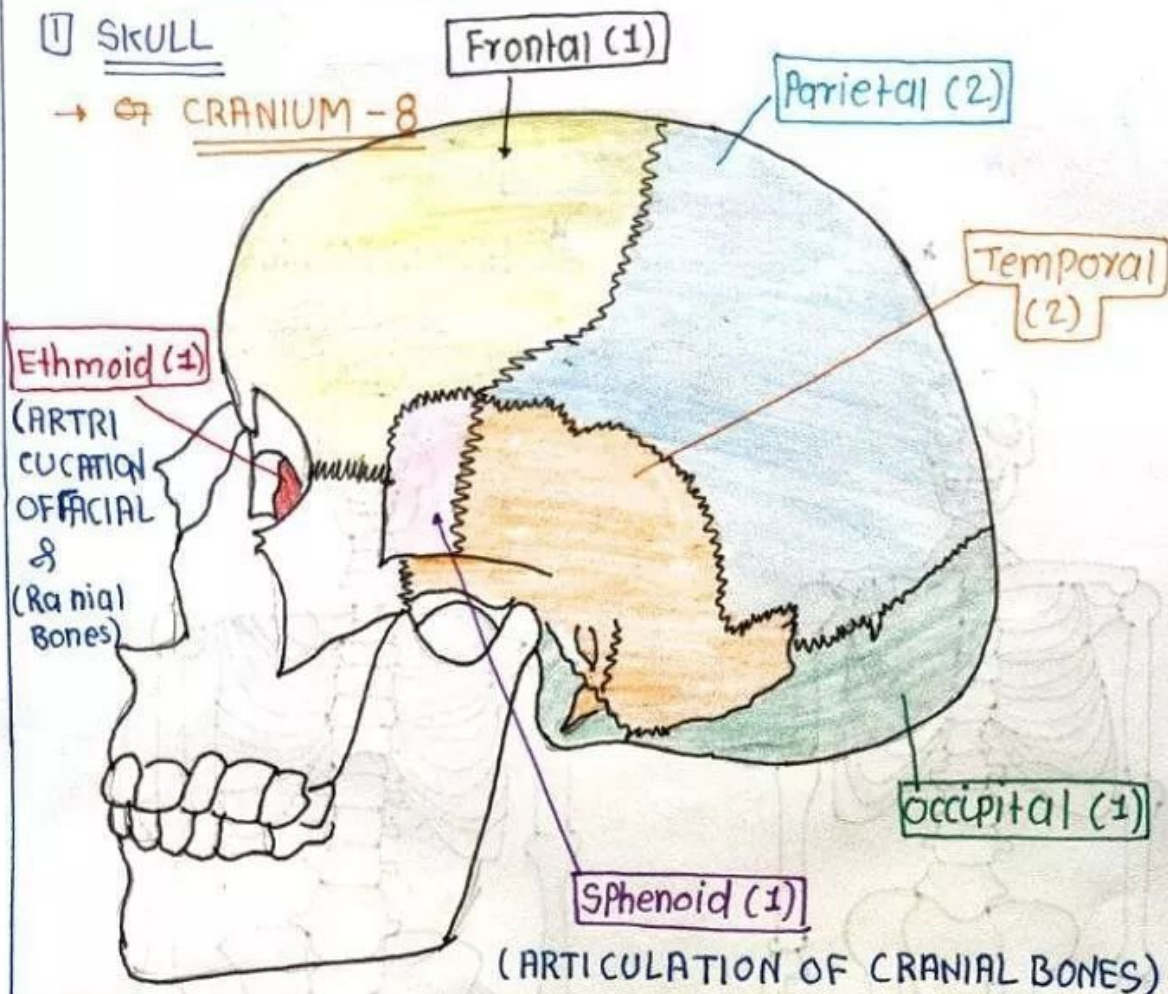 1 SKULL
→ CRANIUM - 8
Frontal (1)
Parietal (2)
Temporal
(2)
Ethmoid (1)
(ARTRI
CUCATION
OF FACIAL
&
(Ranial
Bones)
occipital (1)
Sphenoid (1)
(ARTICULATION OF CRANIAL BONES)